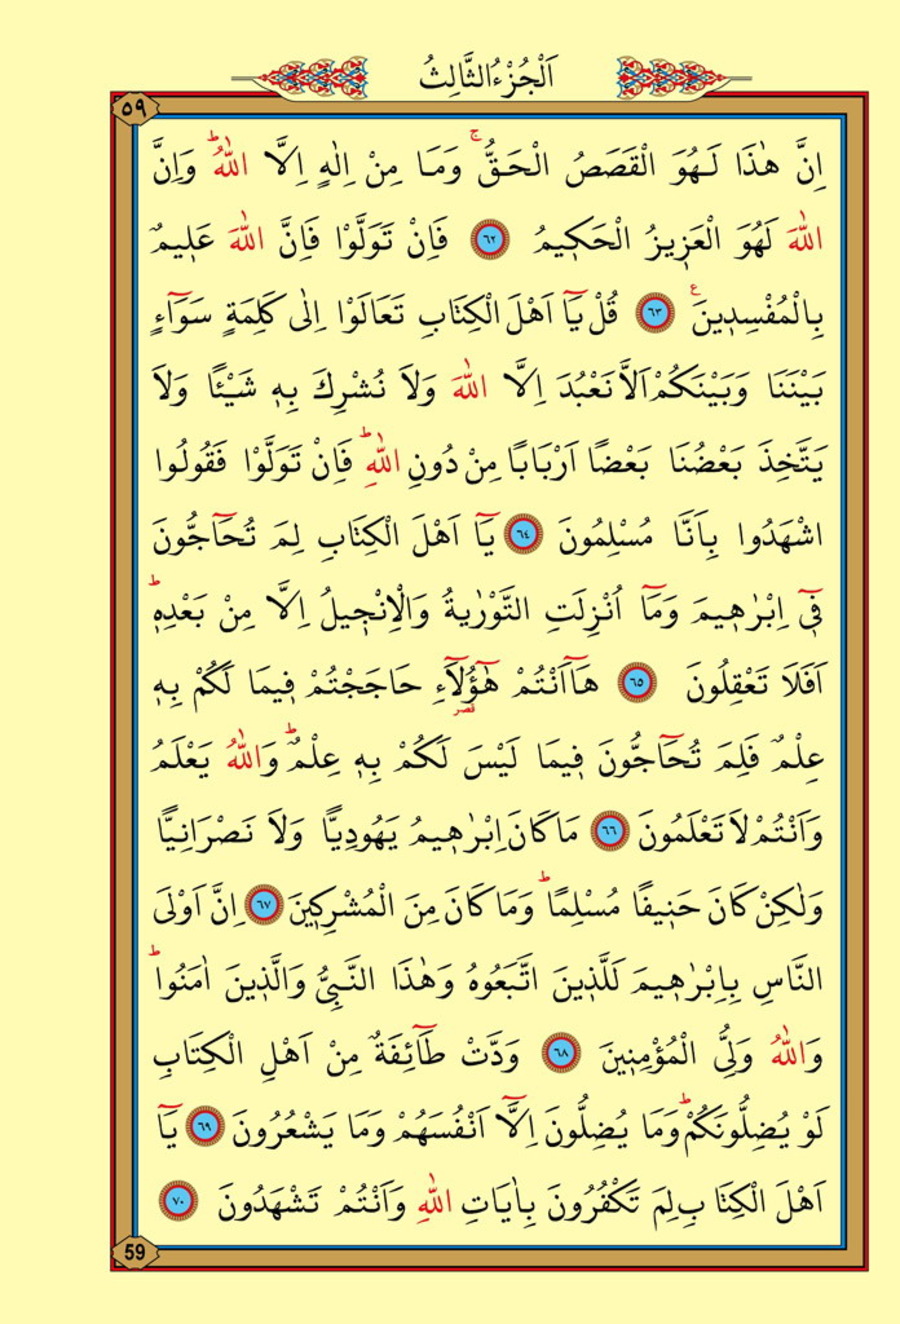 اَلْجُزْءُ الثَّالِثُ
٥٩
اِنَّ هٰذَا لَهُوَ الْقَصَصُ الْحَقُّۚ وَمَا مِنْ اِلٰهٍ اِلَّا اللّٰهُؕ وَاِنَّ
اللّٰهَ لَهُوَ الْعَزٖيزُ الْحَكٖيمُ ﴿٦٢﴾ فَاِنْ تَوَلَّوْا فَاِنَّ اللّٰهَ عَلٖيمٌ
بِالْمُفْسِدٖينَ ع ﴿٦٣﴾ قُلْ يَٓا اَهْلَ الْكِتَابِ تَعَالَوْا اِلٰى كَلِمَةٍ سَوَٓاءٍ
بَيْنَنَا وَبَيْنَكُمْ اَلَّا نَعْبُدَ اِلَّا اللّٰهَ وَلَا نُشْرِكَ بِهٖ شَيْئًا وَلَا
يَتَّخِذَ بَعْضُنَا بَعْضًا اَرْبَابًا مِنْ دُونِ اللّٰهِؕ فَاِنْ تَوَلَّوْا فَقُولُوا
اشْهَدُوا بِاَنَّا مُسْلِمُونَ ﴿٦٤﴾ يَٓا اَهْلَ الْكِتَابِ لِمَ تُحَٓاجُّونَ
فٖٓى اِبْرٰهٖيمَ وَمَٓا اُنْزِلَتِ التَّوْرٰيةُ وَالْاِنْجٖيلُ اِلَّا مِنْ بَعْدِهٖؕ
اَفَلَا تَعْقِلُونَ ﴿٦٥﴾ هَٓا اَنْتُمْ هٰٓؤُلَٓاءِ حَاجَجْتُمْ فٖيمَا لَكُمْ بِهٖ
قصر
عِلْمٌ فَلِمَ تُحَٓاجُّونَ فٖيمَا لَيْسَ لَكُمْ بِهٖ عِلْمٌؕ وَاللّٰهُ يَعْلَمُ
وَاَنْتُمْ لَا تَعْلَمُونَ ﴿٦٦﴾ مَا كَانَ اِبْرٰهٖيمُ يَهُودِيًّا وَلَا نَصْرَانِيًّا
وَلٰكِنْ كَانَ حَنٖيفًا مُسْلِمًاؕ وَمَا كَانَ مِنَ الْمُشْرِكٖينَ ﴿٦٧﴾ اِنَّ اَوْلَى
النَّاسِ بِاِبْرٰهٖيمَ لَلَّذٖينَ اتَّبَعُوهُ وَهٰذَا النَّبِىُّ وَالَّذٖينَ اٰمَنُواؕ
وَاللّٰهُ وَلِىُّ الْمُؤْمِنٖينَ ﴿٦٨﴾ وَدَّتْ طَٓائِفَةٌ مِنْ اَهْلِ الْكِتَابِ
لَوْ يُضِلُّونَكُمْؕ وَمَا يُضِلُّونَ اِلَّٓا اَنْفُسَهُمْ وَمَا يَشْعُرُونَ ﴿٦٩﴾ يَٓا
اَهْلَ الْكِتَابِ لِمَ تَكْفُرُونَ بِاٰيَاتِ اللّٰهِ وَاَنْتُمْ تَشْهَدُونَ ﴿٧٠﴾
59